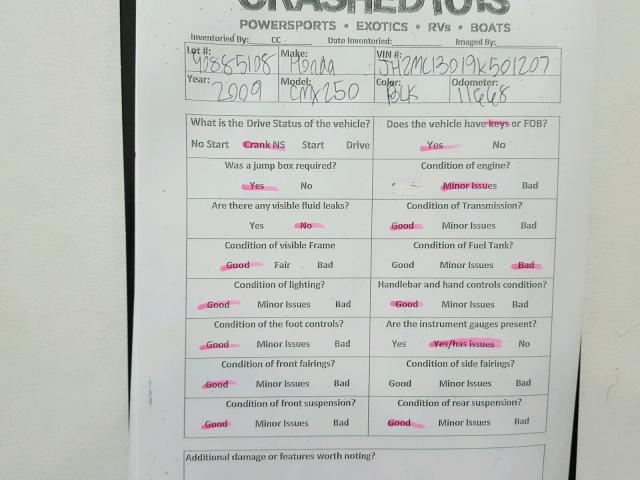 CRASHEDTOYS
POWERSPORTS • EXOTICS • RVs • BOATS
Inventoried By: CC Date Inventoried: Imaged By:
Lot #: 40885108 Make: Honda VIN #: JH2MC13019K501207
Year: 2009 Model: CMX250 Color: BLK Odometer: 11668
What is the Drive Status of the vehicle? Does the vehicle have keys or FOB?
No Start Crank NS Start Drive Yes No
Was a jump box required? Condition of engine?
Yes No Minor Issues Bad
Are there any visible fluid leaks? Condition of Transmission?
Yes No Good Minor Issues Bad
Condition of visible Frame Condition of Fuel Tank?
Good Fair Bad Good Minor Issues Bad
Condition of lighting? Handlebar and hand controls condition?
Good Minor Issues Bad Good Minor Issues Bad
Condition of the foot controls? Are the instrument gauges present?
Good Minor Issues Bad Yes Yes/has issues No
Condition of front fairings? Condition of side fairings?
Good Minor Issues Bad Good Minor Issues Bad
Condition of front suspension? Condition of rear suspension?
Good Minor Issues Bad Good Minor Issues Bad
Additional damage or features worth noting?